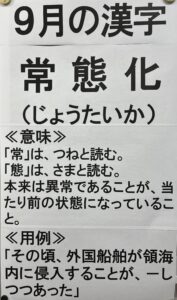 9月の漢字
常態化
(じょうたいか)
≪意味≫
「常」は、つねと読む。
「態」は、さまと読む。
本来は異常であることが、当
たり前の状態になっているこ
と。
≪用例≫
「その頃、外国船舶が領海
内に侵入することが、―し
つつあった」